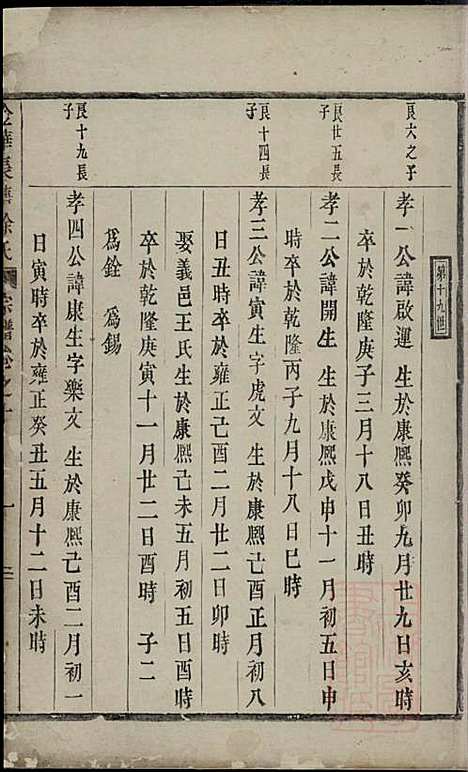 第十九世
良六之子
孝一公諱啟運 生於康熙癸卯九月廿九日亥時
卒於乾隆庚子三月十八日丑時
良廿五長子
孝二公諱開生 生於康熙戊申十一月初五日申
時卒於乾隆丙子九月十八日巳時
良十四長子
孝三公諱寅生字虎文 生於康熙己酉正月初八
日丑時卒於雍正己酉二月廿二日卯時
娶義邑王氏生於康熙己未五月初五日酉時
卒於乾隆庚寅十一月廿二日酉時 子二
爲銓 爲錫
良十九長子
孝四公諱康生字樂文 生於康熙己酉二月初一
日寅時卒於雍正癸丑五月十二日未時
金華長塘徐氏宗譜卷之十